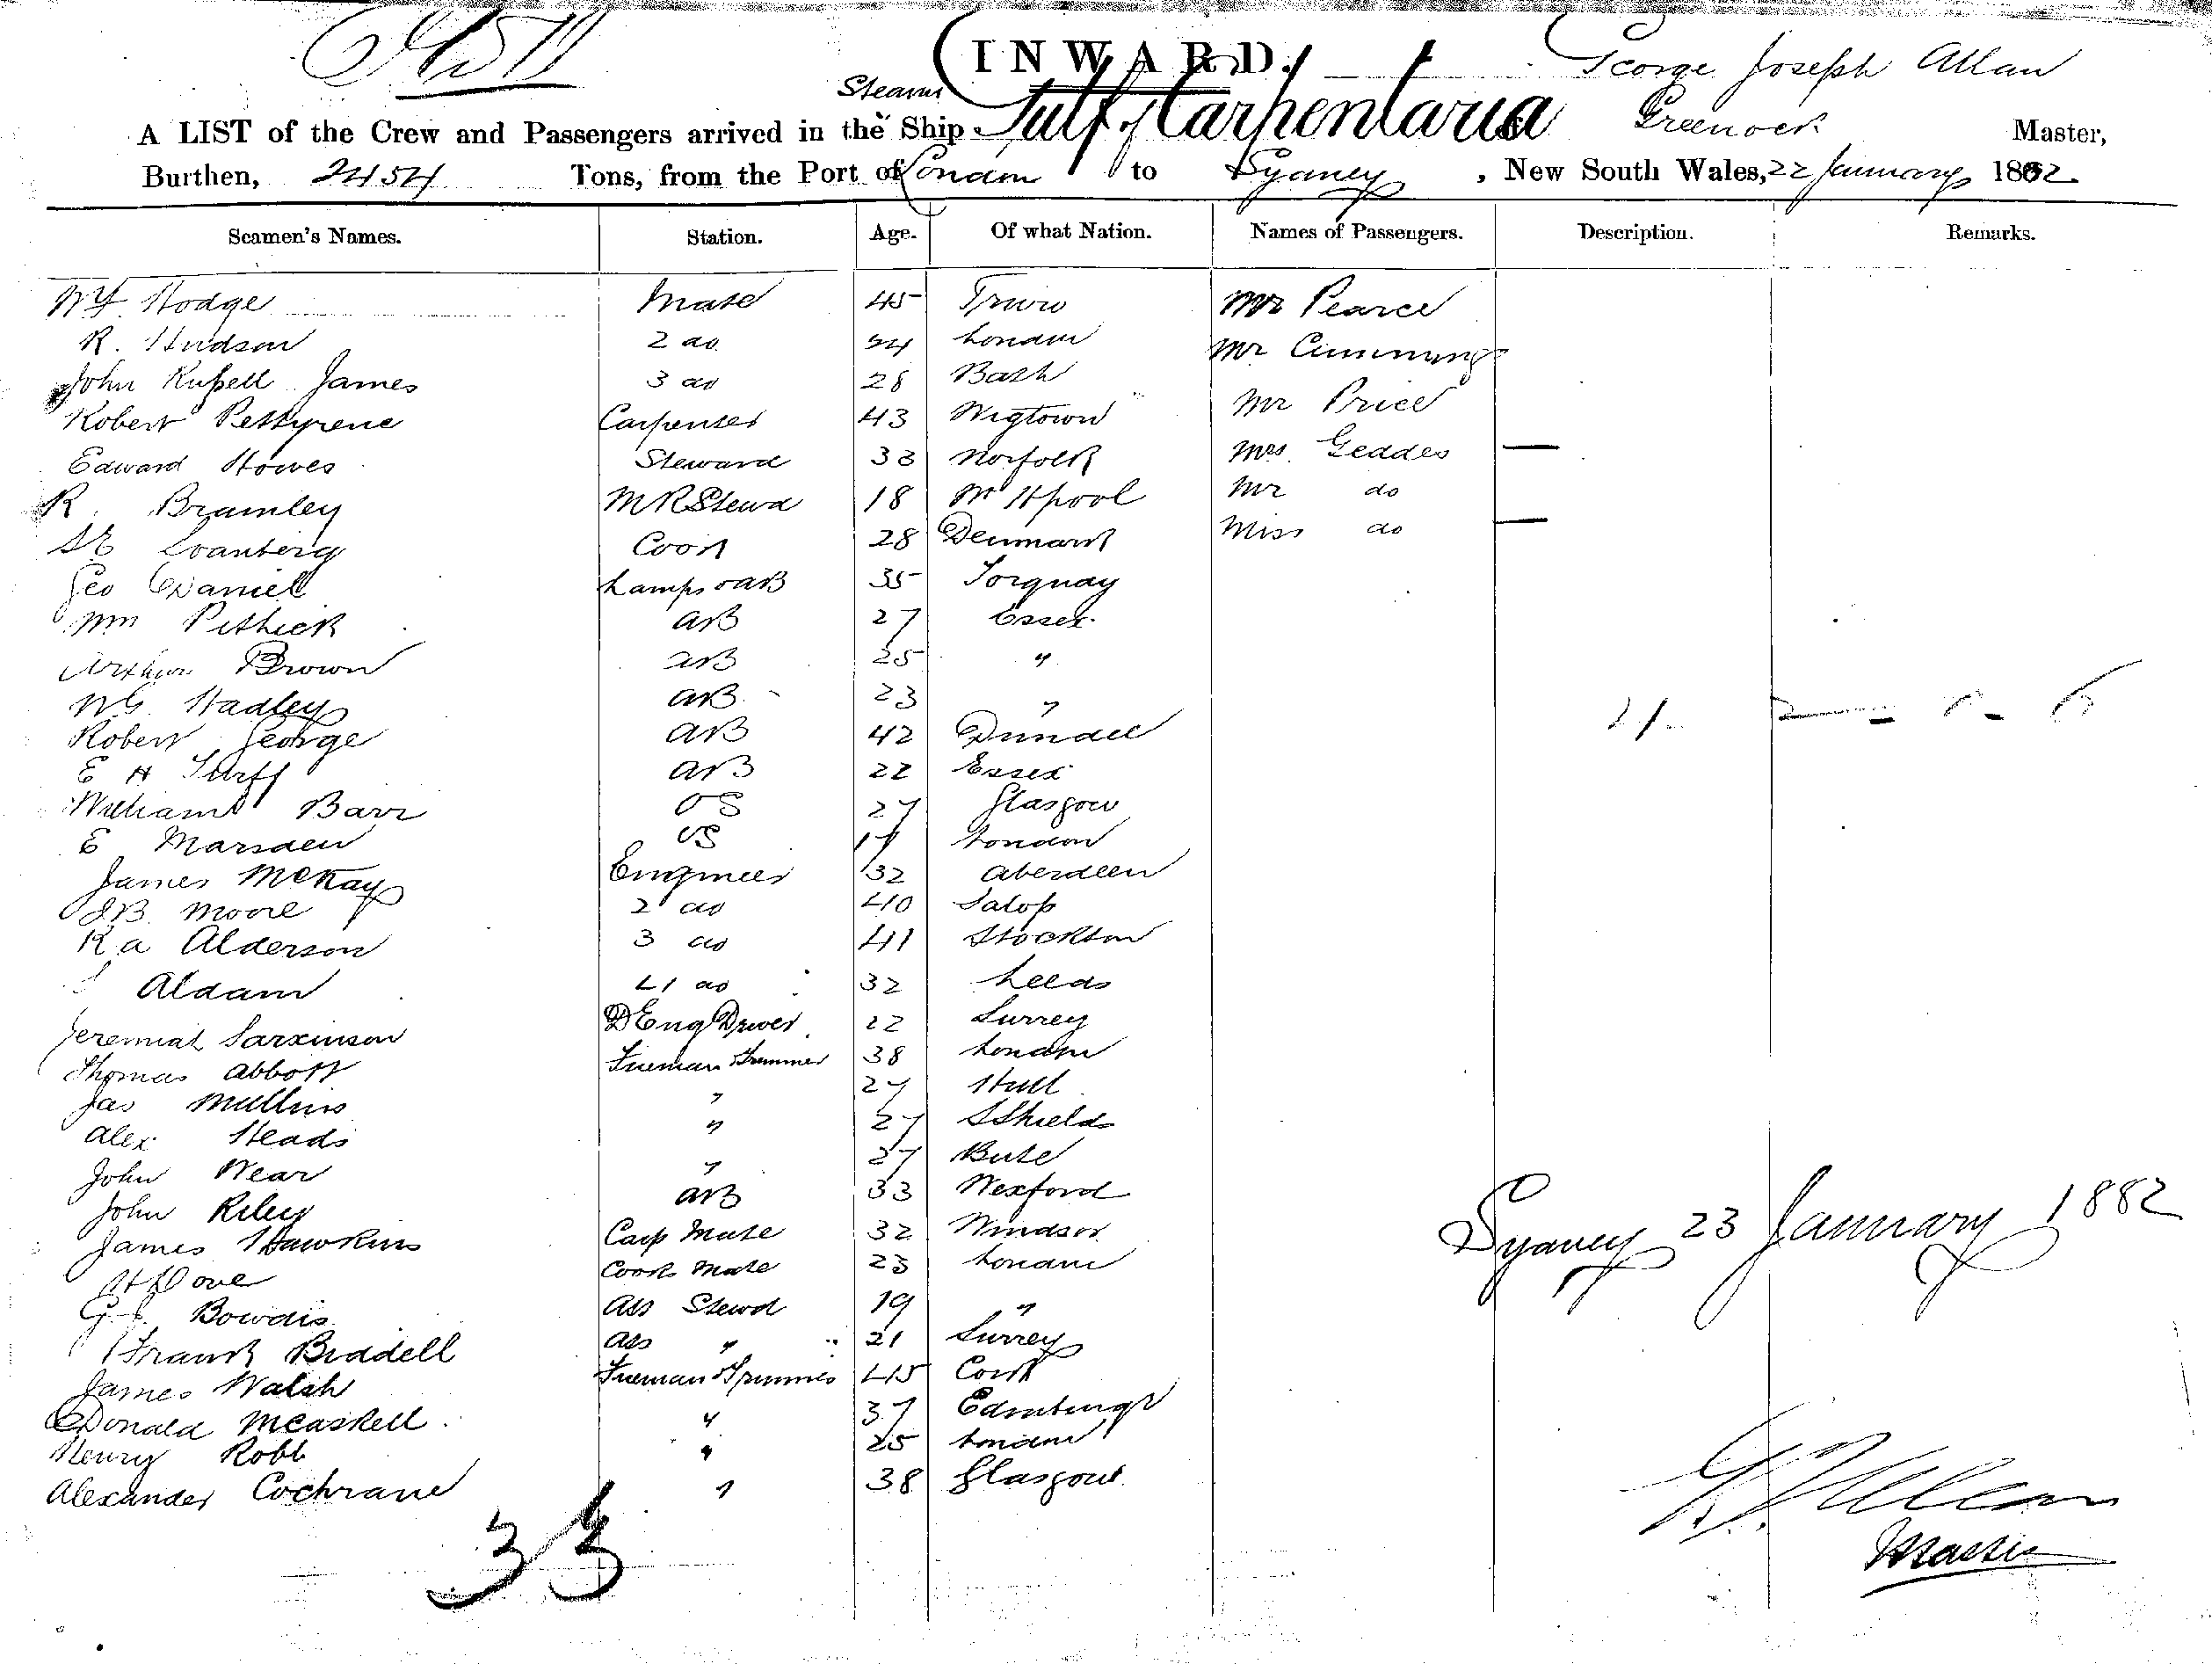 INWARD.
George Joseph Allan
Steam
A LIST of the Crew and Passengers arrived in the Ship Gulf of Carpentaria Greenock Master,
Burthen, 2454 Tons, from the Port of London to Sydney, New South Wales, 22 January 1882.
Seamen's Names. Station. Age. Of what Nation. Names of Passengers. Description. Remarks.
Hodge Mate 45 Truro Mr Pearce
R. Hudson 2 do London Mr Cummings
John Rußell James 3 do 28 Bath Mr Price
Robert Carpenter 43 Wigtown
Edward Howes Steward 33 Norfolk Mrs Geddes —
R. Bramley M R Stewd 18 Mr do
Cook 28 Denmark Miss do —
Geo Daniel Lamps & AB 35 Torquay
Wm Pethick AB 27 Essex
Arthur Brown AB 25 "
W G Hadley AB 23 "
Robert George AB 42 Dundee
E H Turff AB 22 Essex
William Barr OS 27 Glasgow
E Marsden OS London
James McKay Engineer 32 Aberdeen
J B Moore 2 do 40 Salop
R A Alderson 3 do 41 Stockton
Aldam 4 do 32 Leeds
Jeremiah D Eng Driver 22 Surrey
Thomas Abbott Fireman Trimmer 38 London
Jas Mullins " 27 Hull
Alex Heads " 27 S Shields
John Wear " 27 Bute
John Riley AB 33 Wexford
James Hawkins Carp Mate 32 Windsor
H Dove Cooks Mate 23 London
G. J. Bowdis Ass Stewd 19 "
Frank Biddell Ass " 21 Surrey
James Walsh Fireman Trimmer 45 Cork
Donald McAskell " 37 Edinburgh
Henry Robb " 25 London
Alexander Cochrane " 38 Glasgow
Sydney 23 January 1882
33
G J Allan
Master